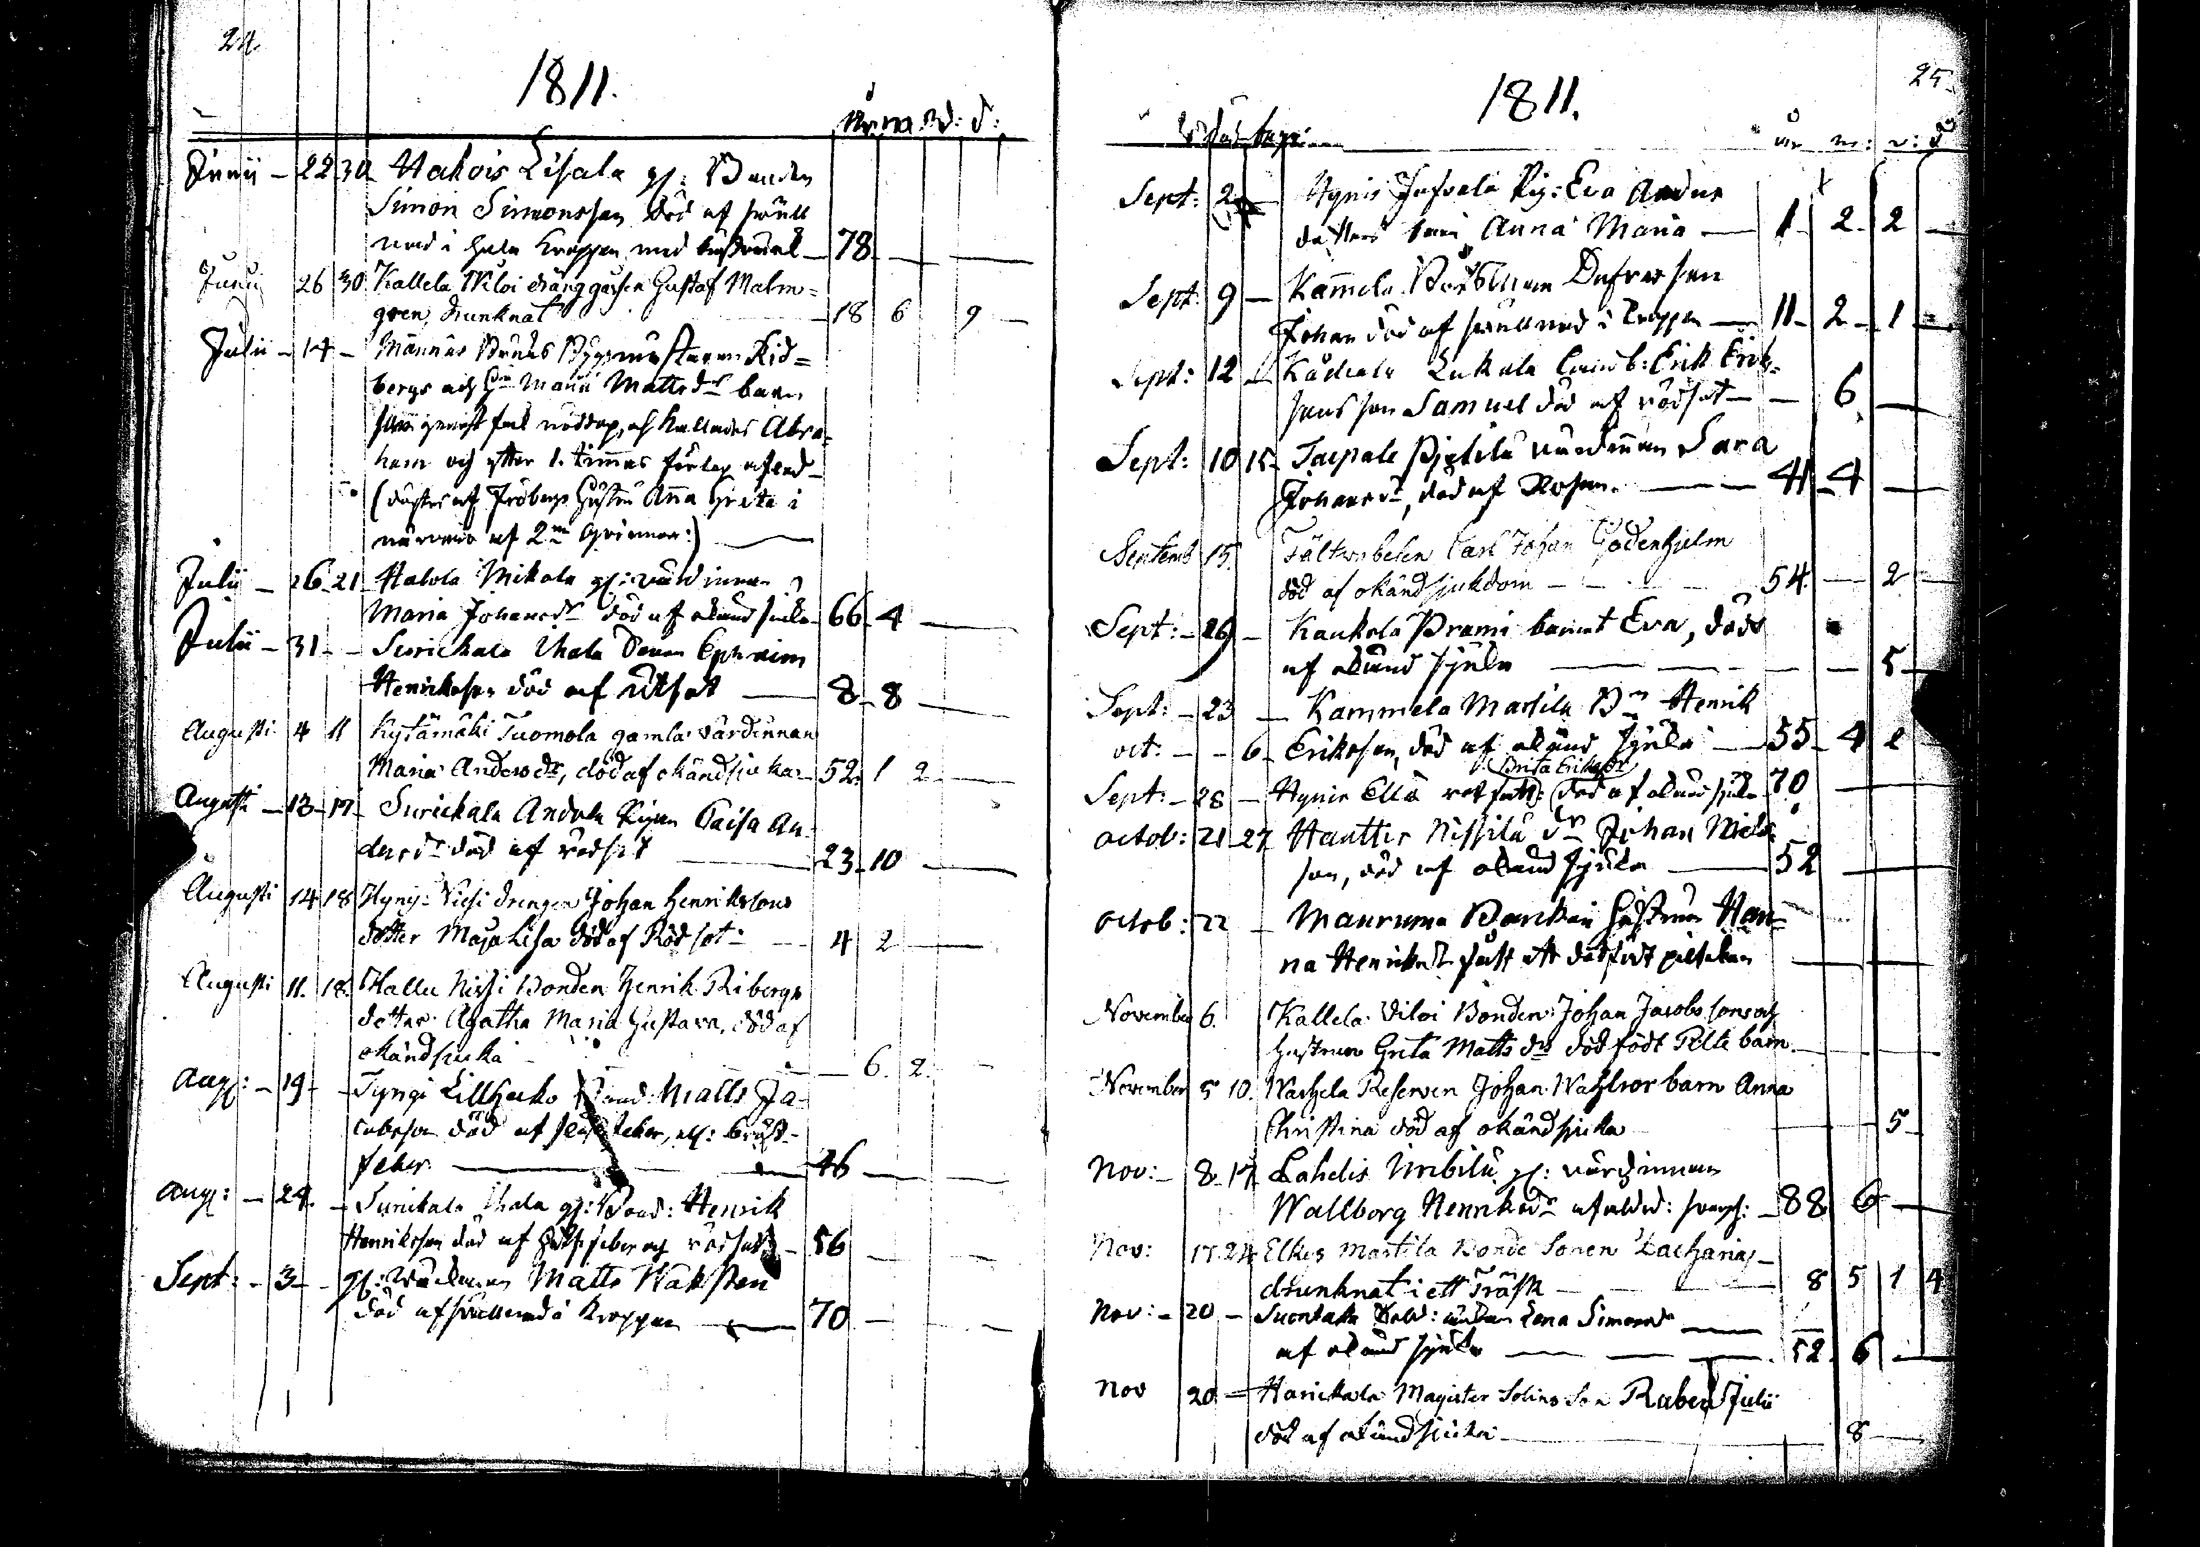 24.
1811.
år. m. v: d:
Junii - 22 30 Hakois Lisala gl: Bonden
Simon Simonsson död af swull
nad i hela kroppen med 78
Junii 26 30 Kallela Wiloi dränggossen Gustaf Malm=
gren, drunknat 18 6 9
Julii - 14 - Männäis
bergs och Hu Maria Matts dr barn
nöddop, och kallades Abra
ham och efter 1. timmas förlop afled
(döptes af Hustru Anna Greta i
närvaro af 2ne qvinnor:)
Julii - 26 21 Halola Mikola gl: värdinnan
Maria Johansdr död af okänd sjuka 66 4
Julii - 31 - Surickala Ihala Sonen Ephraim
Henriksson död af rödsot 8 8
Augusti 4 11 Kytämäki Tuomola gamla värdinnan
Maria Andersdr, död af okänd sjuka 52 1 2
Augusti - 13 - 17 - Surickala Andola Pigan Caisa An
dersdr död af rödsot 23 10
Augusti 14 18 Hynj: Virsi drengen Johan Henrikssons
dotter Maja Lisa död af Rödsot 4 2
Augusti 11. 18. Kallu Nissi Bonden Henrik Ribergs
dotter Agatha Maria Gustava, död af
okänd sjuka 6. 2.
Aug: - 19 - Tyngi Lillhecko Bond: Matts Ja
cobsson död af feber, el: bröst-
feber. 46
Aug: - 24. - Surickala Ihala gl: Bond: Henrik
Henriksson död af feber och rödsot 56
Sept: - 3 - gl: Matts Waksten
död af swullnad i kroppen 70
25.
1811.
år m: v: d
Sept: 2 Hynis Pig: Eva Anders
dotters barn Anna Maria 1 2 2
Sept: 9 - Kammela
Johan död af swullnad i kroppen 11 2 1
Sept: 12 - Lukala b: Erik Erik-
sons son Samuel död af rödsot 6
Sept: 10 15 Taipale värdinnan Sara
Johansdr, död af Rosen. 41 4
Septemb 15. Fältwebelen Carl Johan Gödenhjelm
död af okänd sjukdom 54 2
Sept: - 29 - Kaukola Prami barnet Eva, död
af okänd sjuka 5
Sept: - 23 - Kammela Martila Bn Henrik
oct: - - 6 - Eriksson, död af okänd sjuka 55 4 2
Brita Eriksdr
Sept: - 28 - Hynis Ellä rot död af okänd sjuka 70
octob: 21 27 Hauttis Nissilä dn Johan Niels
son, död af okänd sjuka 52
octob: 22 - Maurumaa hustrun Han
na Henriksdr fått ett dödfödt piltebarn
November 6. Kallela Viloi Bonden Johan Jacobssons och
hustrun Greta Matts dr död födt Pilte barn.
November 5 10. Warhela Reserven Johan barn Anna
Christina död af okänd sjuka 5
Nov: - 8 17 Lahdis Uubila gl: värdinnan
Wallborg Henriksdr af ålderd: 88 6
Nov: 17. 24 Elkis Martila Bonde Sonen Zacharias
drunknat i ett Träsk 8 5 1 4
Nov: - 20 - Suontaka Lena Simonsdr
af okänd sjuka 52 6
Nov 20 - Harickala Magister Solins Son Ruben Julii
död af okänd sjuka 8